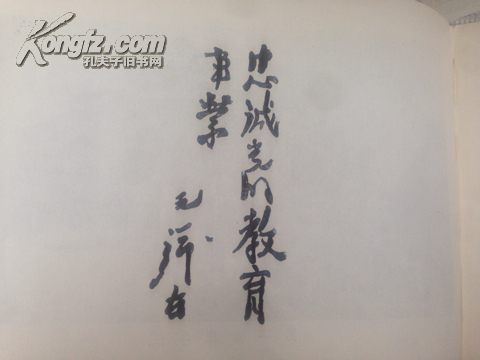 Kongfz.com
孔夫子旧书网
忠诚党的教育
事业
毛泽东